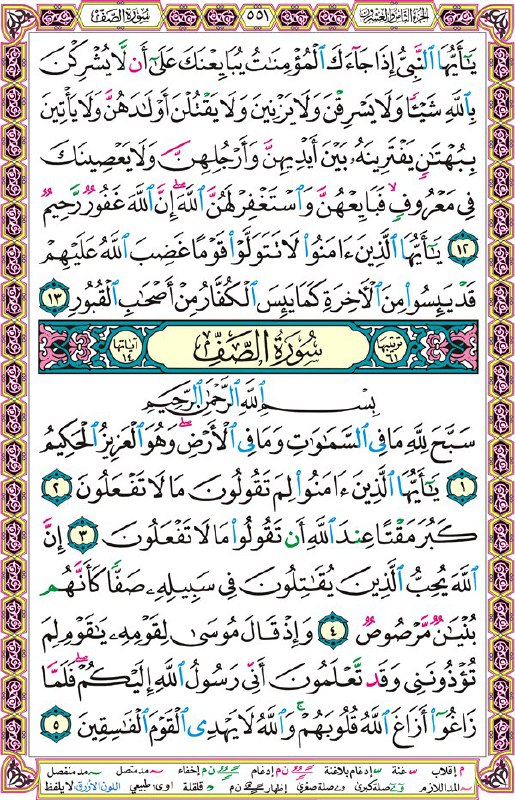 الجزء الثامن والعشرون ٥٥١ سورة الصف
يَٰٓأَيُّهَا ٱلنَّبِىُّ إِذَا جَآءَكَ ٱلْمُؤْمِنَٰتُ يُبَايِعْنَكَ عَلَىٰٓ أَن لَّا يُشْرِكْنَ
بِٱللَّهِ شَيْـًٔا وَلَا يَسْرِقْنَ وَلَا يَزْنِينَ وَلَا يَقْتُلْنَ أَوْلَٰدَهُنَّ وَلَا يَأْتِينَ
بِبُهْتَٰنٍ يَفْتَرِينَهُۥ بَيْنَ أَيْدِيهِنَّ وَأَرْجُلِهِنَّ وَلَا يَعْصِينَكَ
فِى مَعْرُوفٍ ۙ فَبَايِعْهُنَّ وَٱسْتَغْفِرْ لَهُنَّ ٱللَّهَ ۖ إِنَّ ٱللَّهَ غَفُورٌ رَّحِيمٌ
١٢ يَٰٓأَيُّهَا ٱلَّذِينَ ءَامَنُوا۟ لَا تَتَوَلَّوْا۟ قَوْمًا غَضِبَ ٱللَّهُ عَلَيْهِمْ
قَدْ يَئِسُوا۟ مِنَ ٱلْـَٔاخِرَةِ كَمَا يَئِسَ ٱلْكُفَّارُ مِنْ أَصْحَٰبِ ٱلْقُبُورِ ١٣
ترتيبها ٦١ سُورَةُ الصَّفِّ آياتها ١٤
بِسْمِ ٱللَّهِ ٱلرَّحْمَٰنِ ٱلرَّحِيمِ
سَبَّحَ لِلَّهِ مَا فِى ٱلسَّمَٰوَٰتِ وَمَا فِى ٱلْأَرْضِ ۖ وَهُوَ ٱلْعَزِيزُ ٱلْحَكِيمُ
١ يَٰٓأَيُّهَا ٱلَّذِينَ ءَامَنُوا۟ لِمَ تَقُولُونَ مَا لَا تَفْعَلُونَ ٢
كَبُرَ مَقْتًا عِندَ ٱللَّهِ أَن تَقُولُوا۟ مَا لَا تَفْعَلُونَ ٣ إِنَّ
ٱللَّهَ يُحِبُّ ٱلَّذِينَ يُقَٰتِلُونَ فِى سَبِيلِهِۦ صَفًّا كَأَنَّهُم
بُنْيَٰنٌ مَّرْصُوصٌ ٤ وَإِذْ قَالَ مُوسَىٰ لِقَوْمِهِۦ يَٰقَوْمِ لِمَ
تُؤْذُونَنِى وَقَد تَّعْلَمُونَ أَنِّى رَسُولُ ٱللَّهِ إِلَيْكُمْ ۖ فَلَمَّا
زَاغُوٓا۟ أَزَاغَ ٱللَّهُ قُلُوبَهُمْ ۚ وَٱللَّهُ لَا يَهْدِى ٱلْقَوْمَ ٱلْفَٰسِقِينَ ٥
م إقلاب س غنة س إدغام بلاغنة ن م إدغام ن م إخفاء مد متصل مد منفصل
المد اللازم صلة كبرى صلة صغرى إظهار ن م قلقلة اوى طبيعي اللون الأزرق لا يلفظ